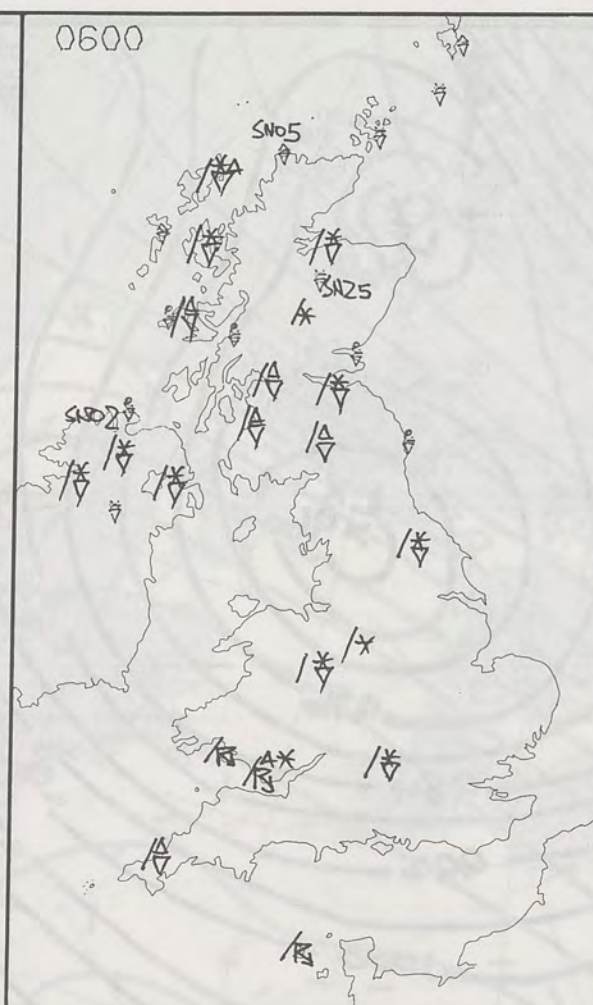 0600
SN05
SN25
SN02